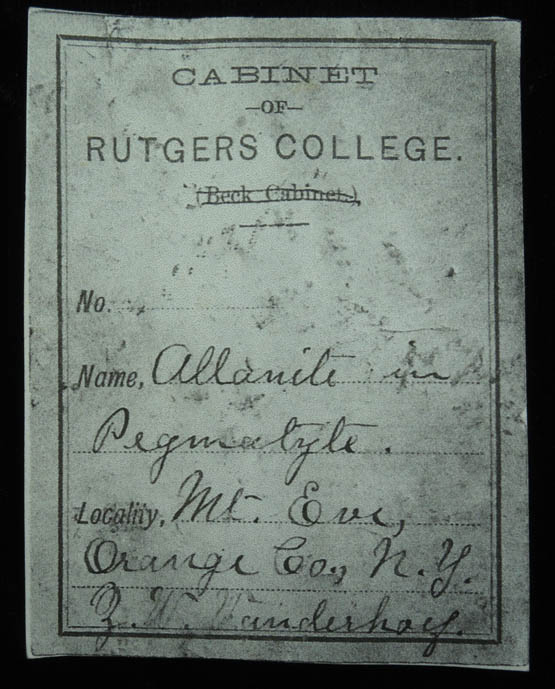 CABINET
—OF—
RUTGERS COLLEGE.
(Beck Cabinet.),
No.
Name, Allanite in
Pegmatyte.
Locality, Mt. Eve,
Orange Co., N.Y.
W. Vanderhoef.